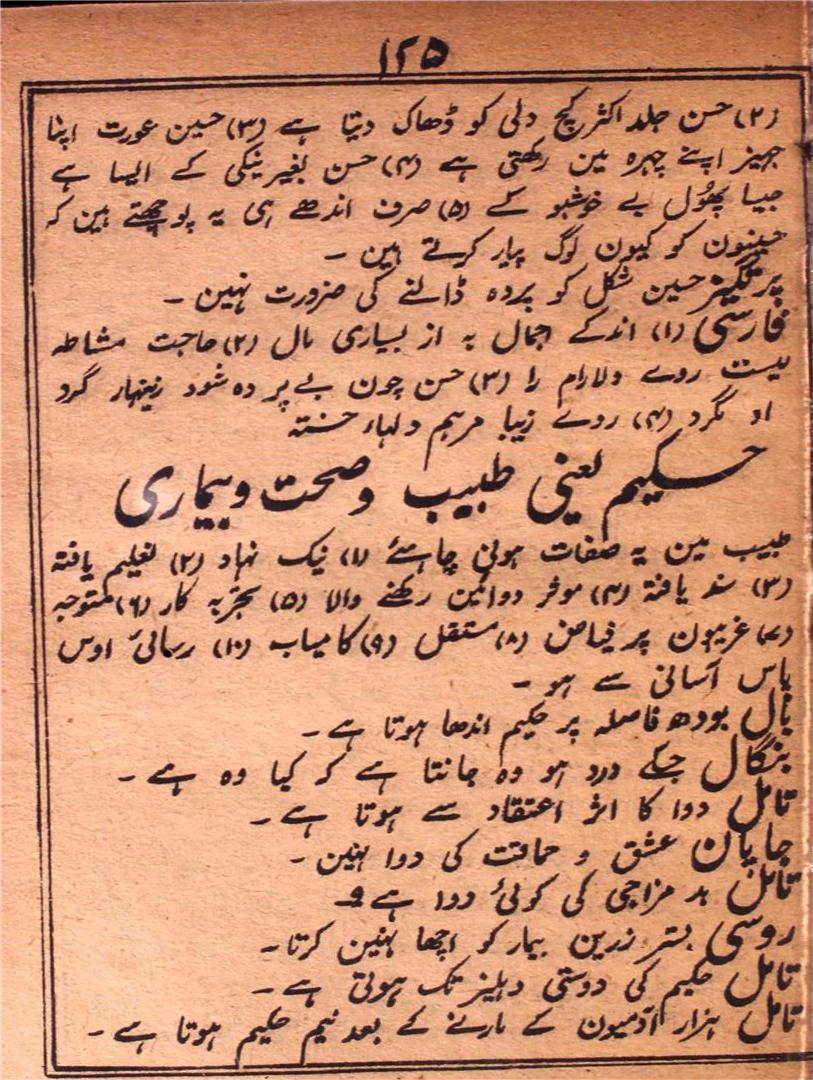 ۱۲۵
(۲) حسن جلد اکثر کج دلی کو ڈھاک دیتا ہے (۳) حسین عورت اپنا
جہیز اپنے چہرہ مین رکھتی ہے (۴) حسن بغیر نیکی کے ایسا ہے
جیسا پھُول بے خوشبو کے (۵) صرف اندھے ہی یہ پوچھتے ہین کہ
حسینون کو کیون لوگ پیار کرتے ہین ۔
پرتگیز حسین شکل کو پردہ ڈالنے کی ضرورت نہین ۔
فارسی (۱) اندکے جمال بہ از بسیاری مال (۲) حاجت مشاطہ
نیست روے دلارام را (۳) حسن چون بے پردہ شود زینہار گرد
او نگرد (۴) روے زیبا مرہم دلہاء خستہ
حکیم یعنی طبیب و صحت و بیماری
طبیب مین یہ صفات ہونی چاہئے (۱) نیک نہاد (۲) تعلیم یافتہ
(۳) سند یافتہ (۴) موثر دوائین رکھنے والا (۵) تجربہ کار (۶) متوجہ
(۷) غریبون پر فیاض (۸) مستقل (۹) کامیاب (۱۰) رسائی اوس
پاس آسانی سے ہو ۔
بال بودھ فاصلہ پر حکیم اندھا ہوتا ہے ۔
بنگال جسکے درد ہو وہ جانتا ہے کہ کیا وہ ہے ۔
تامل دوا کا اثر اعتقاد سے ہوتا ہے ۔
جاپان عشق و حماقت کی دوا نہین ۔
تامل بد مزاجی کی کوئی دوا ہے ؟
روسی بستر زرین بیمار کو اچھا نہین کرتا ۔
تامل حکیم کی دوستی دہلیز تک ہوتی ہے ۔
تامل ہزار آدمیون کے مارنے کے بعد نیم حکیم ہوتا ہے ۔